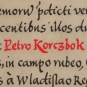 emorū potici ver
scentibus illos du
Petro Korczbok
, in campo rubeo,
s à Wladislao Re